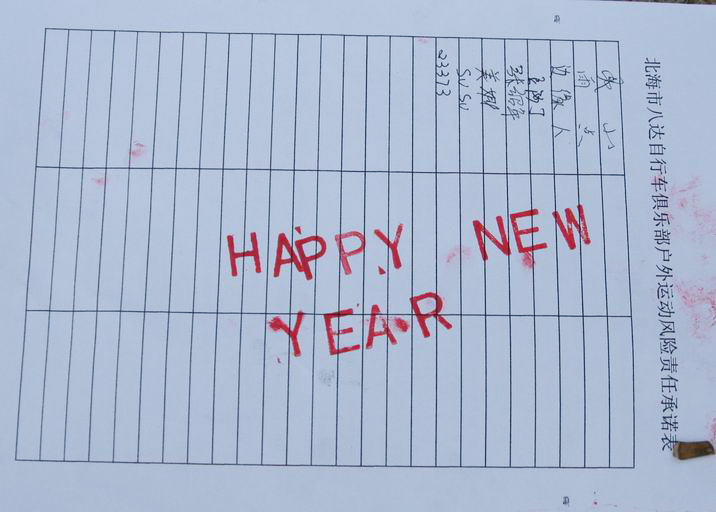 北海市八达自行车俱乐部户外运动风险责任承诺表
雨点
边缘人
美娜
SuSu
23373
HAPPY NEW
YEAR